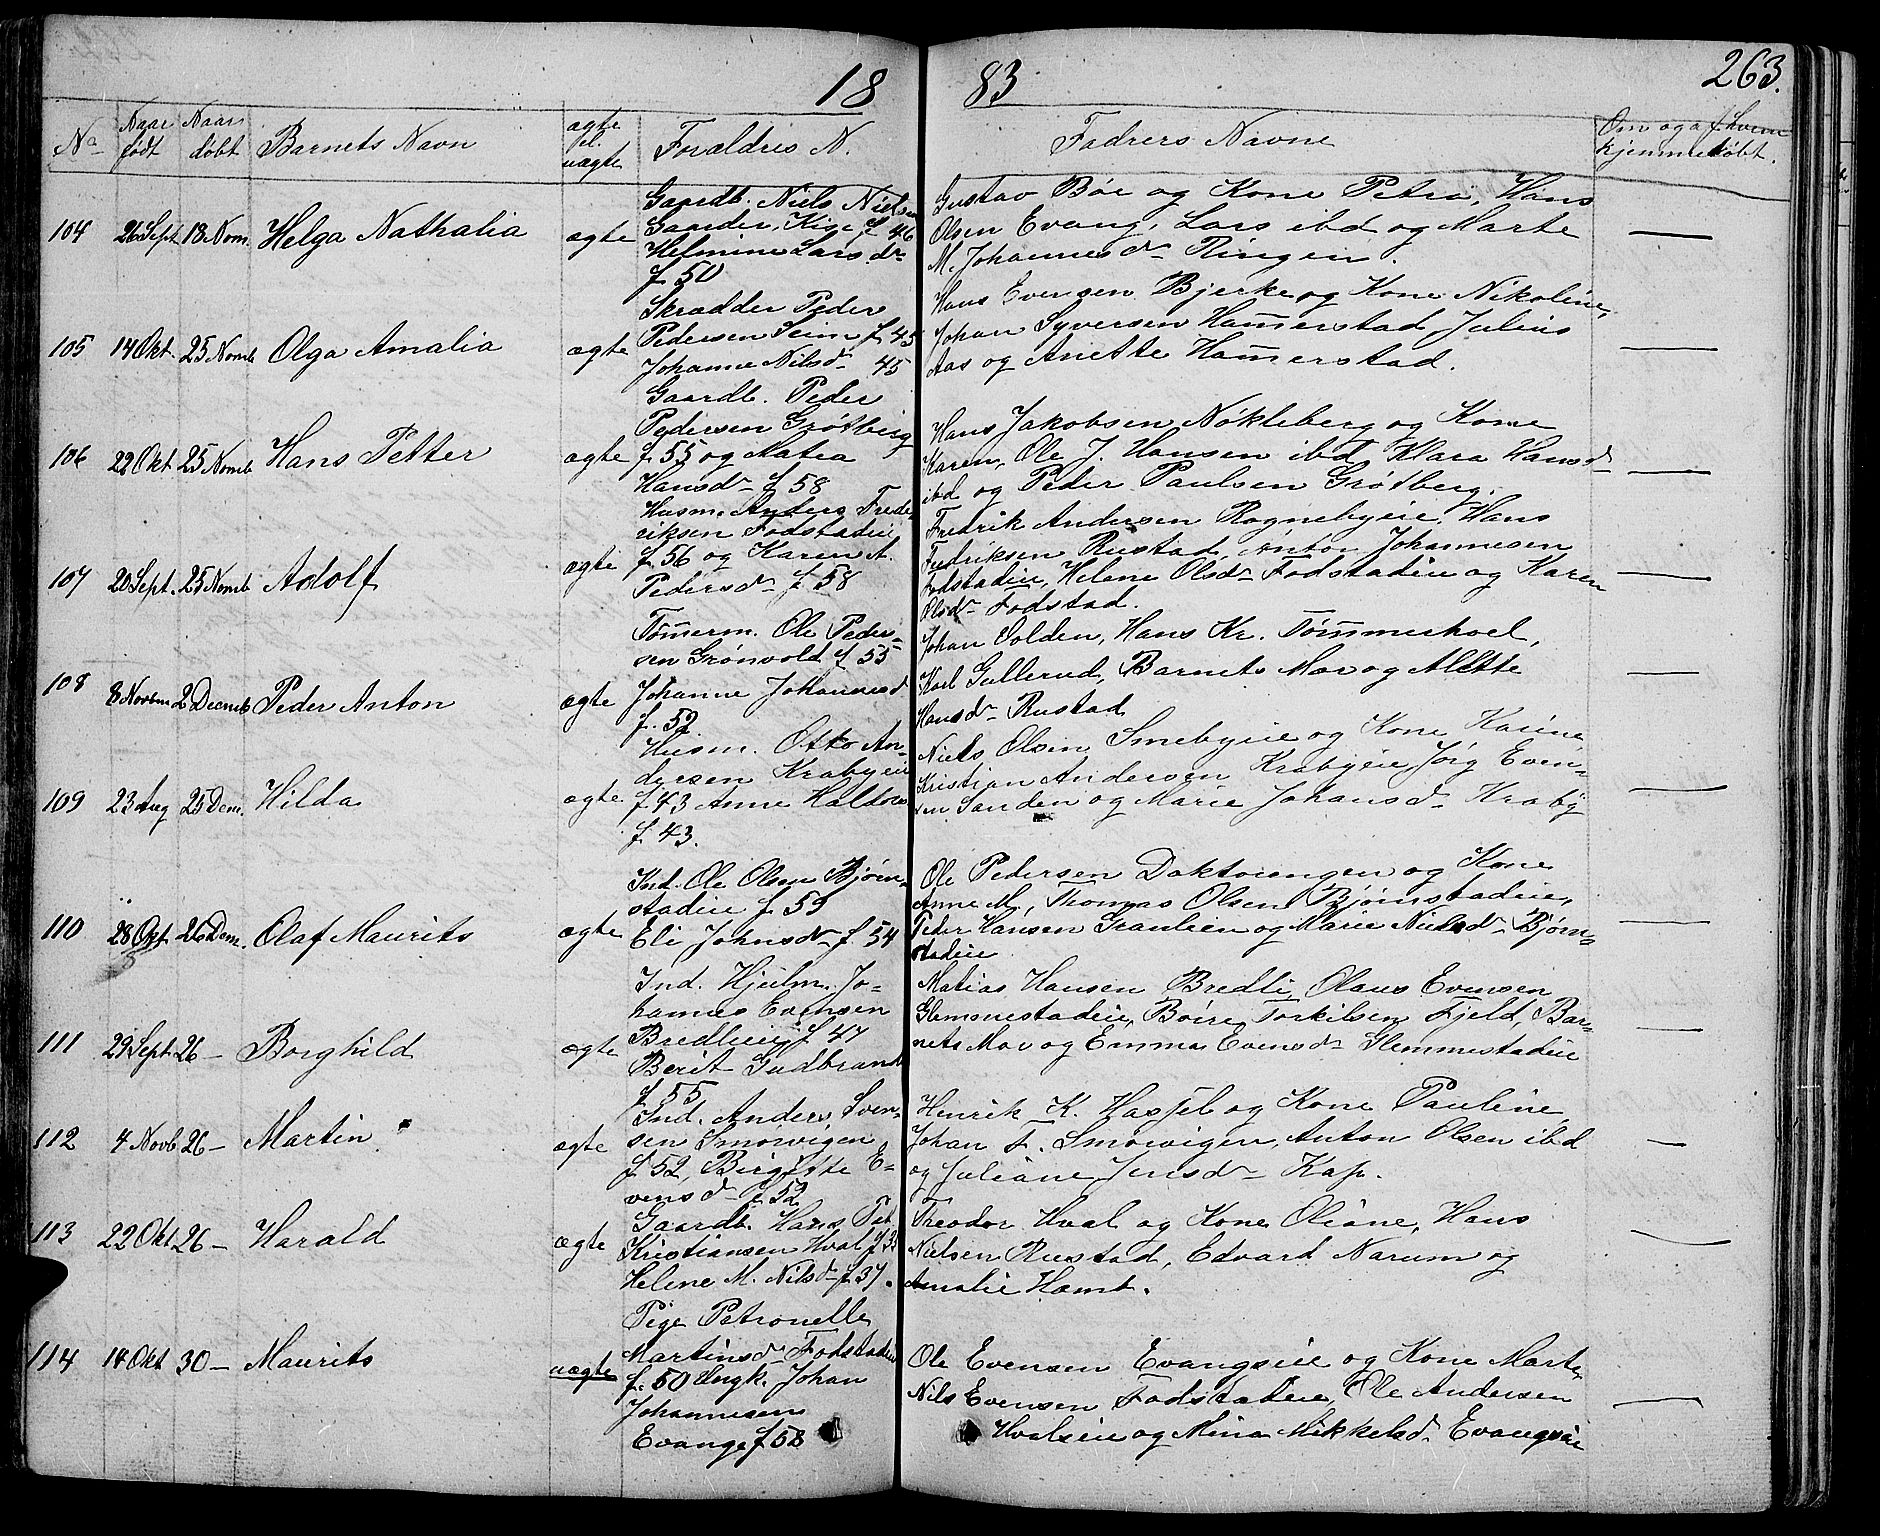 18 83
263.
No Naar født Naar døbt Barnets Navn ægte el. uægte Forældres N. Fadrers Navne Om og af hvem hjemmedøbt.
104 26 Sept 18 Novm. Helga Nathalia ægte
Gaardb. Niels Nielsen
Gaarder, Kige f 46
Helmine Larsdr
f 50
Gustav Bøe og Kone Petra, Hans
Olsen Evang, Lars ibd og Marte
M. Johannesdr Ringen.
105 14 Okt. 25 Novmb Olga Amalia ægte
Skrædder Peder
Pedersen Seim f 45
Johanne Nilsdr 45
Hans Evensen Bjerke og Kone Nikoline,
Johan Syversen Hammerstad, Julius
Aas og Anette Hammerstad.
106 22 Okt 25 Novmb Hans Petter ægte
Gaardb. Peder
Pedersen Grøtberg
f. 55 og Matea
Hansdr f 58
Hans Jakobsen Nøkleberg og Kone
Karen, Ole J. Hansen ibd Klara Hansdr
ibd og Peder Paulsen Grøtberg.
107 20 Sept. 25 Novmb Adolf ægte
Husm. Anders Frede-
riksen Fodstadeie
f. 56 og Karen A.
Pedersdr f. 58
Fredrik Andersen Rognebyeie, Hans
Fredriksen Rustad, Anton Johannesen
Fodstadeie, Helene Olsdr Fodstadeie og Karen
Olsdr Fodstad.
108 8 Novem 2 Decmb Peder Anton ægte
Tømmerm. Ole Peder-
sen Grønvold f 55
Johanne Johannesd
f. 52.
Johan Solden, Hans Kr. Tømmerhoel,
Karl Gullerud, Barnets Mor og Alette
Hansdr Rustad
109 23 Aug 25 Dem. Hilda ægte
Husm. Otto An-
dersen Krabyeie
f. 43 Anne Haldors
f. 43.
Niels Olsen Smebyeie og Kone Karine
Kristian Andersen Krabyeie Jørg Even-
sen Sanden og Marie Johansdr Kraby
110 28 Okt 26 Dem. Olaf Maurits ægte
Ind. Ole Olsen Bjørn-
stadeie f 59
Eli Johnsdr f 54
Ole Pedersen Doktorengen og Kone
Anne M., Thomas Olsen Bjørnstadeie,
Peder Hansen Granlien og Marie Nielsdr Bjørn-
stadeie
111 29 Sept 26 – Borghild ægte
Ind. Hjulm. Jo-
hannes Evensen
Bredlieie f 47
Berit Gudbrands
f 55
Matias Hansen Bredli, Olaus Evensen
Glemmestadeie, Børre Torkilsen Fjeld, Bar-
nets Mor og Emma Evensdr Glemmestadeie
112 4 Novb 26 – Martin ægte
Ind. Anders Sven-
sen Smørvigen
f. 52, Birgitte E-
vensdr f. 52
Henrik K. Hasfel og Kone Pauline
Johan F. Smørvigen, Anton Olsen ibd
og Juliane Jensdr Kap.
113 22 Okt 26 – Harald ægte
Gaardb. Hans Pet.
Kristiansen Hval f 35
Helene M. Nilsdr f 37.
Theodor Hval og Kone Oliane, Hans
Nielsen Rustad, Edvard Narum og
Amalie Homb.
114 14 Okt 30 – Maurits uægte
Pige Petronelle
Martinsdr Fodstadeie
f. 50 Ungk. Johan
Johannesen
Evang f 58
Ole Evensen Evangseie og Kone Marte
Nils Evensen Fodstadeie, Ole Andersen
Hvalseie og Mina Mikkelsdr Evangseie